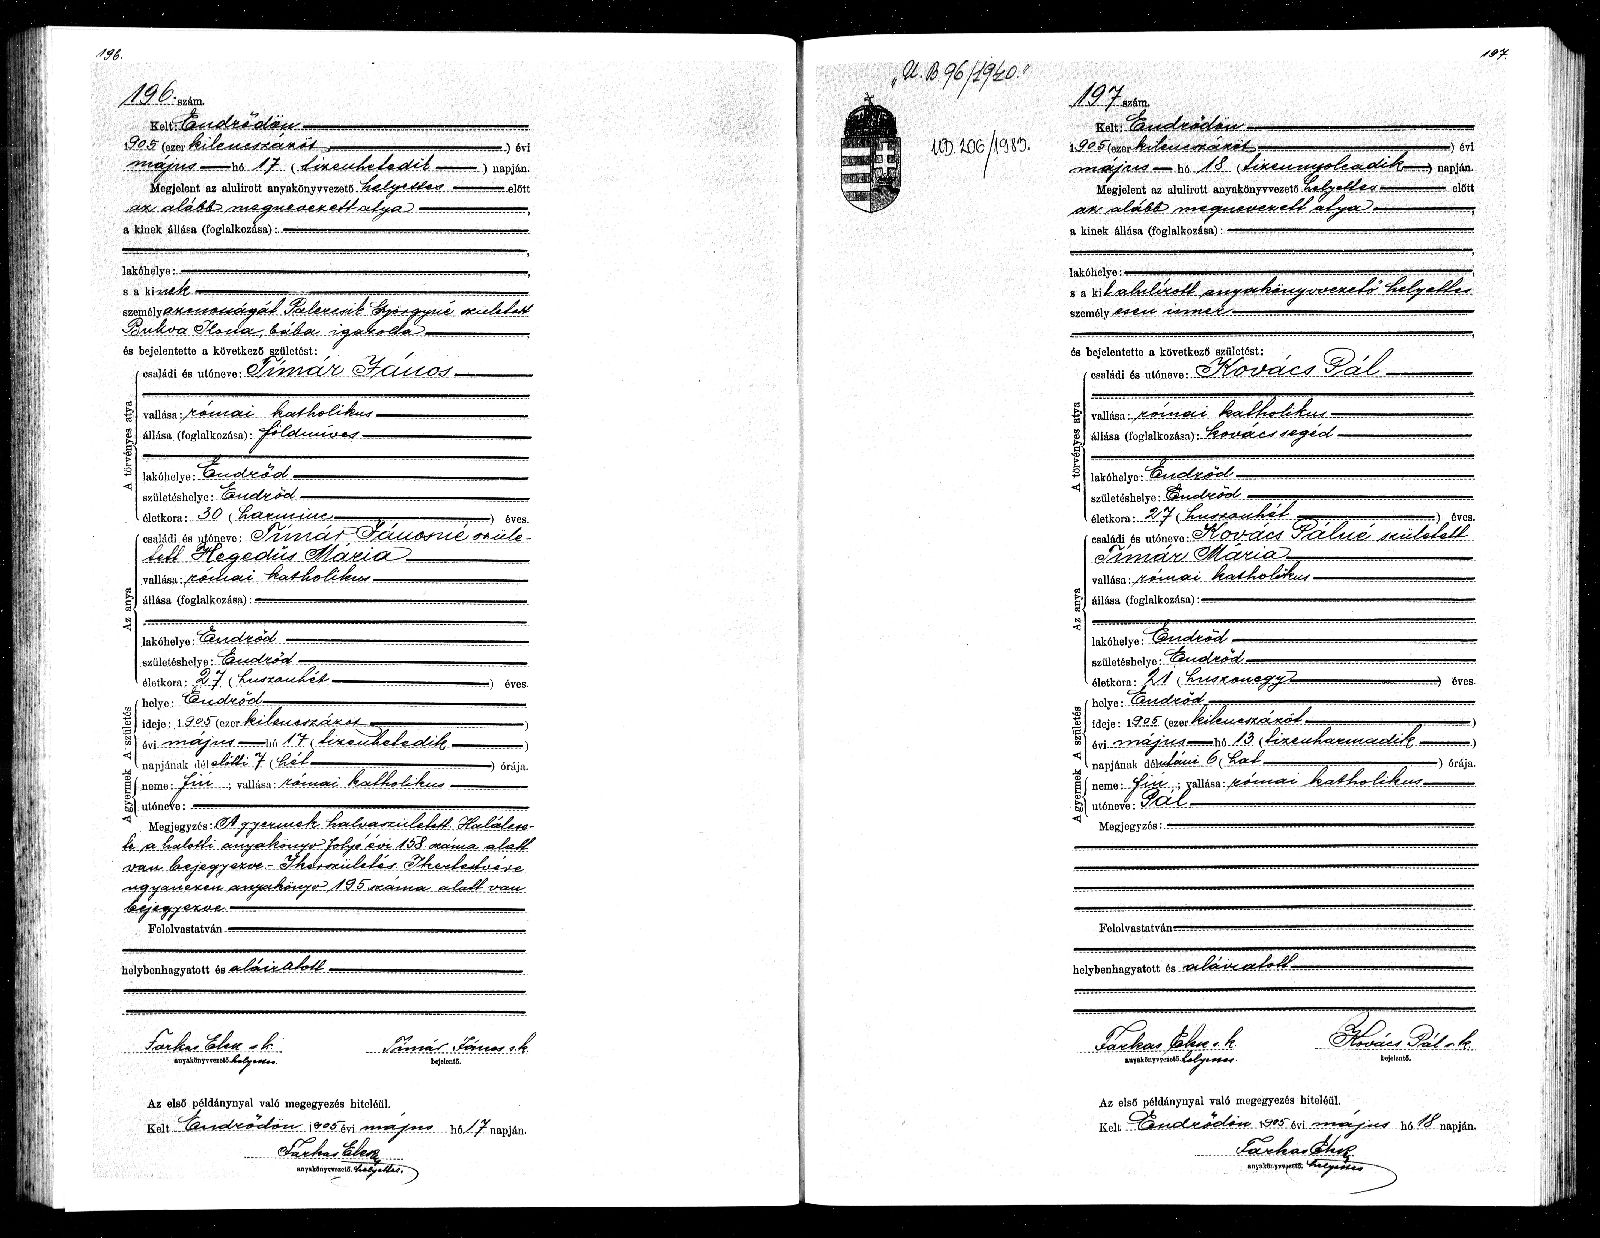 196.
196. szám.
Kelt: Endrődön
1905 (ezer kilencszázöt) évi
május hó 17 (tizenhetedik) napján.
Megjelent az alulirott anyakönyvvezető helyettes előtt
az alább megnevezett atya,
a kinek állása (foglalkozása):
lakóhelye:
s a kinek
személyazonosságát Györgyné született
Ilona, bába igazolta
és bejelentette a következő születést:
A törvényes atya
családi és utóneve: Tímár János
vallása: római katholikus
állása (foglalkozása): földmíves
lakóhelye: Endrőd
születéshelye: Endrőd
életkora: 30 (harminc) éves.
Az anya
családi és utóneve: Tímár Jánosné szüle-
tett Hegedűs Mária
vallása: római katholikus
állása (foglalkozása):
lakóhelye: Endrőd
születéshelye: Endrőd
életkora: 27 (huszonhét) éves.
A születés
helye: Endrőd
ideje: 1905 (ezer kilencszázöt)
évi május hó 17 (tizenhetedik)
napjának délelőtti 7 (hét) órája.
A gyermek
neme: fiú; vallása: római katholikus
utóneve:
Megjegyzés: A gyermek halvaszületett Halálese-
te a halotti anyakönyv folyó évi 158 száma alatt
van bejegyezve - Ikerszületés. Ikertestvére
ugyanezen anyakönyv 195 száma alatt van
bejegyezve
Felolvastatván
helybenhagyatott és aláiratott
Farkas Elek s.k. Tímár János s.k.
anyakönyvvezető helyettes. bejelentő.
Az első példánynyal való megegyezés hiteléül.
Kelt Endrődön 1905 évi május hó 17 napján.
Farkas Elek
anyakönyvvezető. helyettes.
197.
„U.B. 96/1940."
UD. 206/1983.
197 szám.
Kelt: Endrődön
1905 (ezer kilencszázöt) évi
május hó 18 (tizennyolcadik) napján.
Megjelent az alulirott anyakönyvvezető helyettes előtt
az alább megnevezett atya,
a kinek állása (foglalkozása):
lakóhelye:
s a kit alulírott anyakönyvvezető helyettes
személyesen ismer
és bejelentette a következő születést:
A törvényes atya
családi és utóneve: Kovács Pál
vallása: római katholikus
állása (foglalkozása): kovácssegéd
lakóhelye: Endrőd
születéshelye: Endrőd
életkora: 27 (huszonhét) éves.
Az anya
családi és utóneve: Kovács Pálné született
Tímár Mária
vallása: római katholikus
állása (foglalkozása):
lakóhelye: Endrőd
születéshelye: Endrőd
életkora: 21 (huszonegy) éves.
A születés
helye: Endrőd
ideje: 1905 (ezer kilencszázöt)
évi május hó 13 (tizenharmadik)
napjának délutáni 6 (hat) órája.
A gyermek
neme: fiú; vallása: római katholikus
utóneve: Pál
Megjegyzés:
Felolvastatván
helybenhagyatott és aláiratott
Farkas Elek s.k. Kovács Pál s.k.
anyakönyvvezető helyettes. bejelentő.
Az első példánynyal való megegyezés hiteléül.
Kelt Endrődön 1905 évi május hó 18 napján.
Farkas Elek
anyakönyvvezető. helyettes